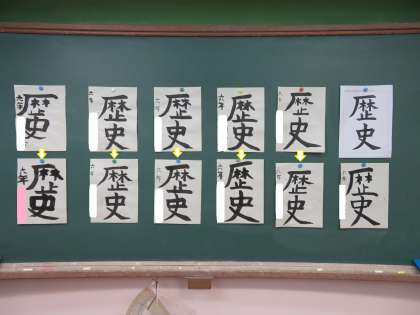 歴史
六年
歴史
六年
歴史
六年
歴史
六年
歴史
六年
歴史
歴史
六年
歴史
六年
歴史
六年
歴史
六年
歴史
六年
歴史